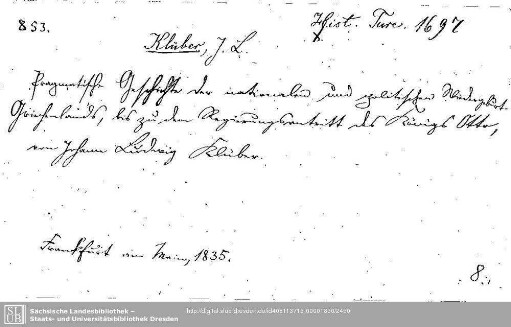 853.
Hist. Turc. 1697
Klüber, J. L.
Pragmatische Geschichte der nationalen und politischen Wiedergeburt
Griechenlands, bis zu dem Regierungsantritt des Königs Otto,
von Johann Ludwig Klüber.
Frankfurt am Main, 1835.
8.
SLUB
Sächsische Landesbibliothek –
Staats- und Universitätsbibliothek Dresden